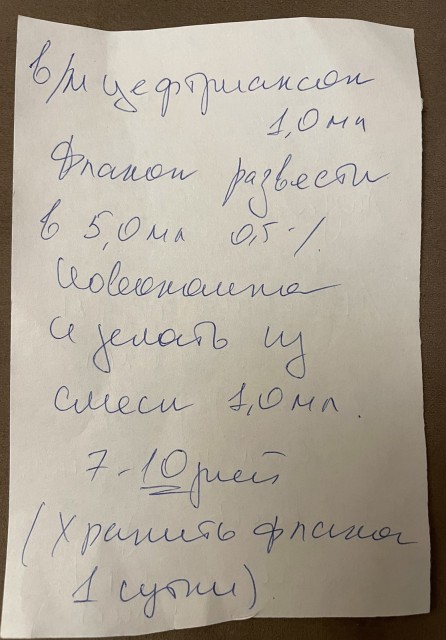 в/м цефтриаксон
1,0 мл
Флакон развести
в 5,0 мл 0,5%
Новокаина
и делать из
смеси 1,0 мл.
7-10 дней
(Хранить флакон
1 сутки)